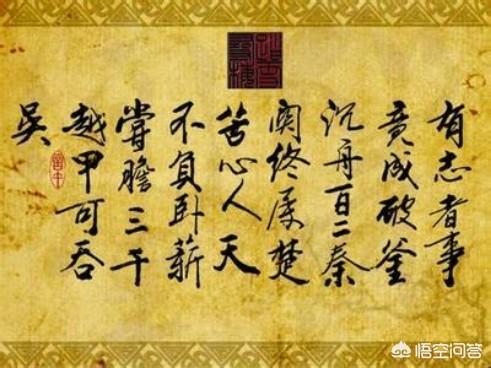 有志者事
竟成破釜
沉舟百二秦
關终属楚
苦心人天
不负卧薪
嘗膽三千
越甲可吞
吴
悟空问答